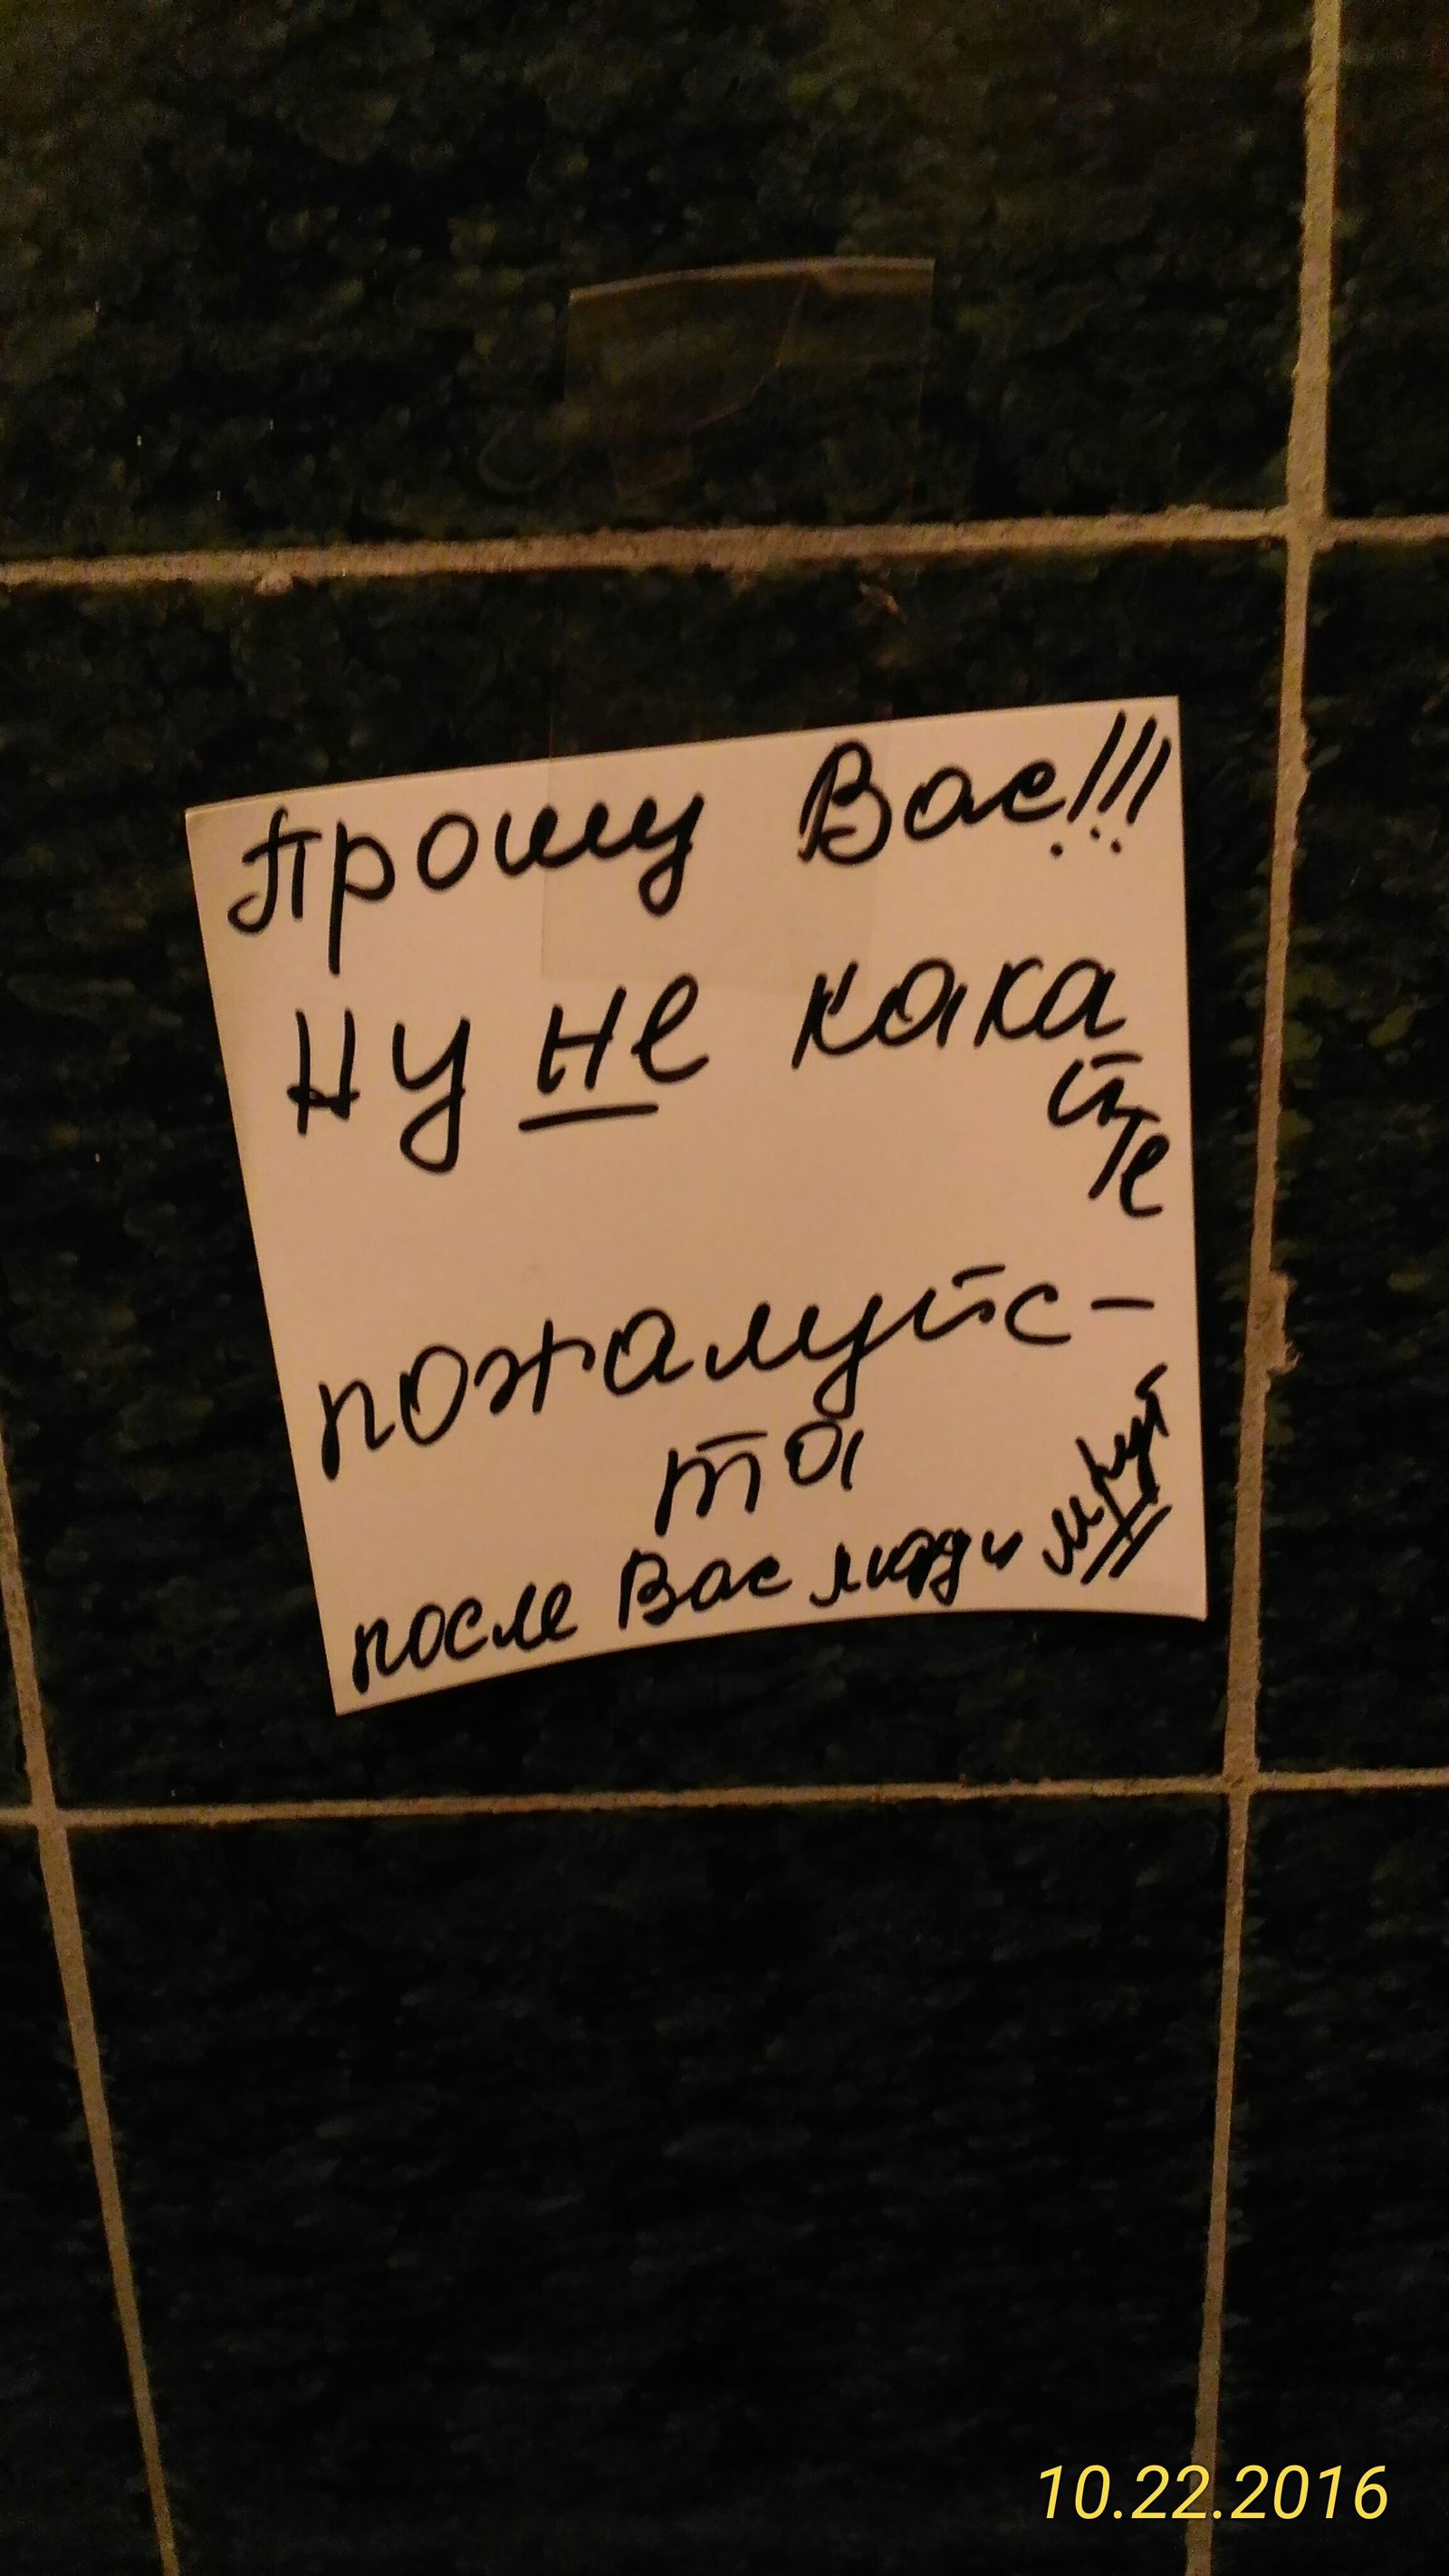 Прошу Вас!!!
ну не кака
йте
пожалуйс-
та
после Вас люди мрут
10.22.2016